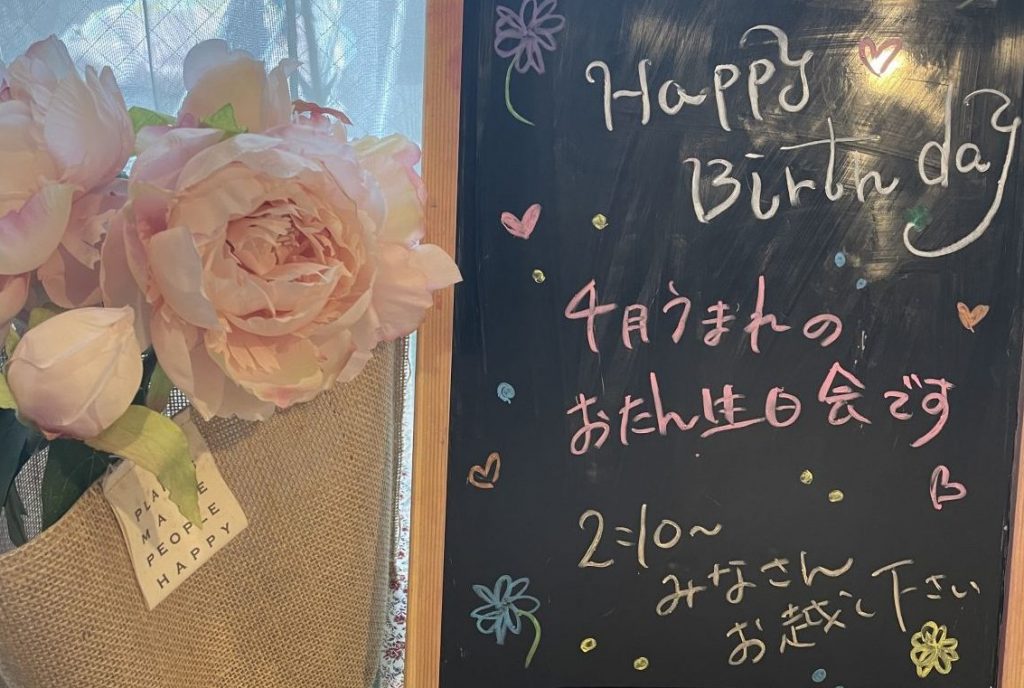 Happy
Birthday
4月うまれの
おたん生日会です
2:10~
みなさん
お越し下さい
MA
PEOPLE
HAPPY